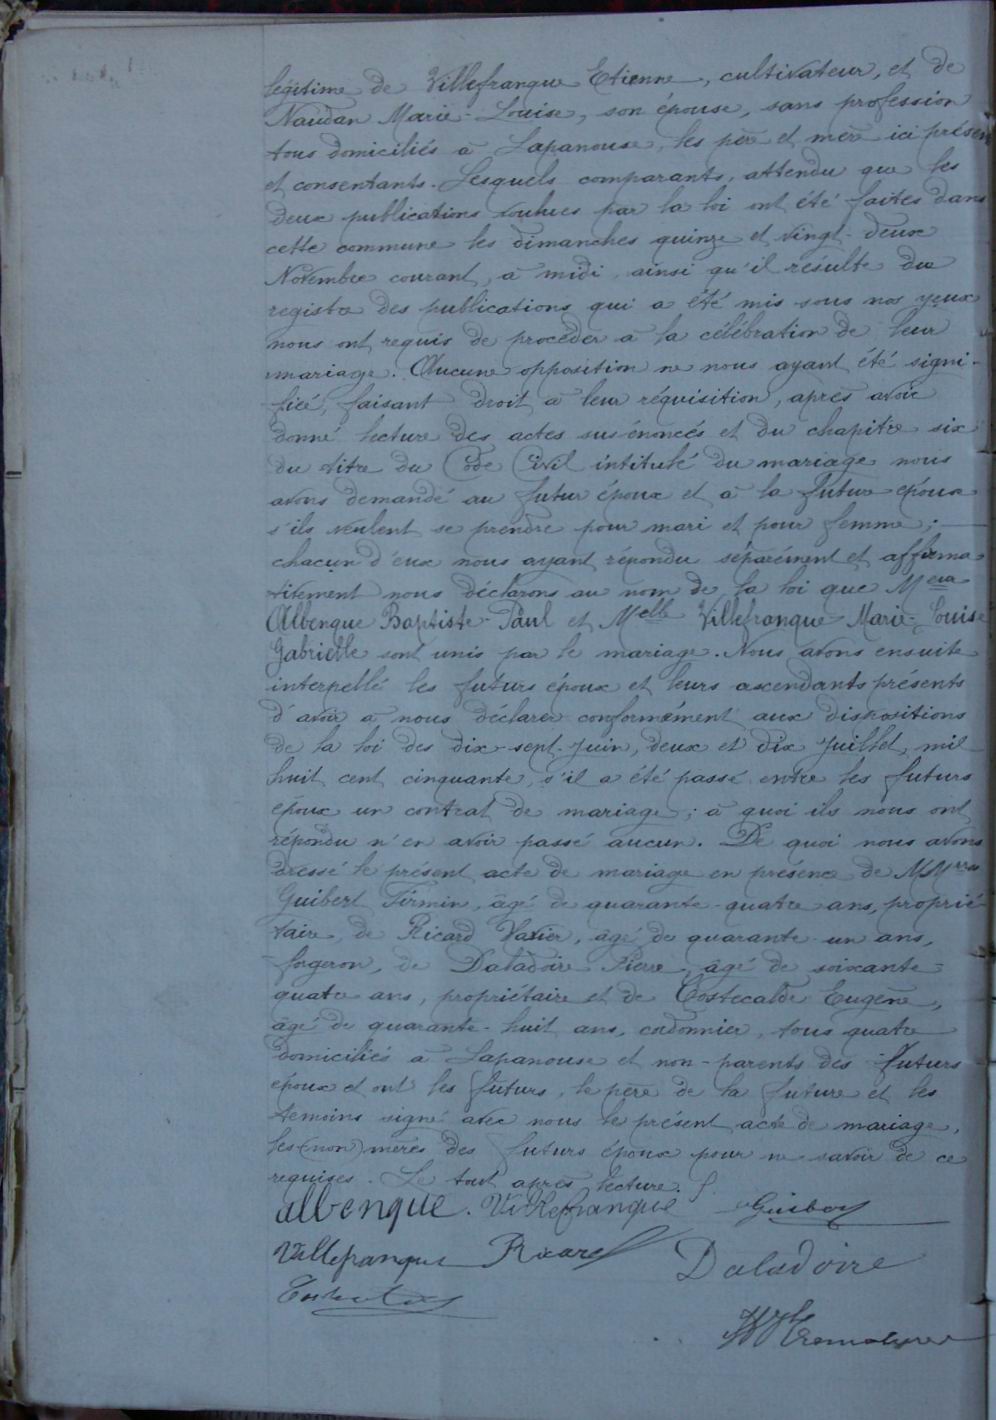 légitime de Villefranque Etienne, cultivateur, et de
Naudan Marie-Louise, son épouse, sans profession
tous domiciliés à Lapanouse, les père et mère ici présen
et consentants. Lesquels comparants, attendu que les
deux publications voulues par la loi ont été faites dans
cette commune les dimanches quinze et vingt-deux
Novembre courant, à midi ainsi qu'il résulte du
registre des publications qui a été mis sous nos yeux
nous ont requis de procéder à la célébration de leur
mariage. Aucune opposition ne nous ayant été signi-
fiée, faisant droit à leur réquisition, après avoir
donné lecture des actes sus énoncés et du chapitre six
du titre du Code Civil intitulé du mariage nous
avons demandé au futur époux et à la future épouse
s'ils veulent se prendre pour mari et pour femme;
chacun d'eux nous ayant répondu séparément et affirma-
tivement nous déclarons au nom de la loi que
Albenque Baptiste-Paul et Melle Villefranque Marie-Louise
Gabrielle sont unis par le mariage. Nous avons ensuite
interpellé les futurs époux et leurs ascendants présents
d'avoir à nous déclarer conformément aux dispositions
de la loi des dix-sept Juin, deux et dix Juillet mil
huit cent cinquante, s'il a été passé entre les futurs
époux un contrat de mariage; à quoi ils nous ont
répondu n'en avoir passé aucun. De quoi nous avons
dressé le présent acte de mariage en présence de
Guibert Firmin, âgé de quarante-quatre ans, proprié-
taire, de Ricard Xavier, âgé de quarante-un ans,
forgeron, de Daladoire Pierre, âgé de soixante-
quatre ans, propriétaire et de Costecalde Eugène,
âgé de quarante-huit ans, cordonnier, tous quatre
domiciliés à Lapanouse et non-parents des futurs
époux et ont les futurs, le père de la future et les
témoins signé avec nous le présent acte de mariage,
les (non) mères des futurs époux pour ne savoir de ce
requises. Le tout après lecture.
albenque. Villefranque Guibert
Villefranque Ricard Daladoire